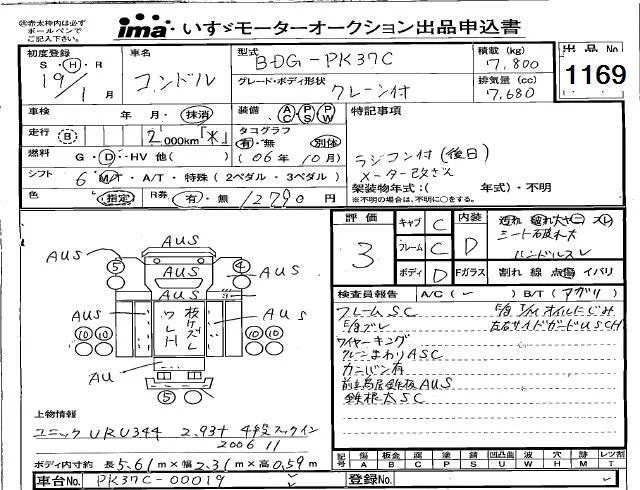 ※赤太枠内は必ず
ボールペンで
ご記入下さい。
ima いすゞモーターオークション出品申込書
初度登録
S・H・R
19/1月
車名
コンドル
型式
BDG-PK37C
グレード・ボディ形状
クレーン付
積載 (kg)
7,800
排気量 (cc)
7,680
出品 No
1169
車検 年 月・抹消
装備 AC PS PW
特記事項
走行 B 2,000km「*」
タコグラフ
有・無 別体
燃料 G・D・HV 他( )
(06年10月)
ラジコン付(後日)
メーター改ざん
シフト 6 M/T・A/T・特殊(2ペダル・3ペダル)
架装物年式:( 年式)・不明
※不明の場合は、不明に○をする。
色 指定 R券 有・無 12790円
評価
3
キャブ C
フレーム C
ボディ D
内装
D
Fガラス
汚れ 破れ大 ヤニ スレ
シート破れ大
ハンドルスレ
割れ 線 点傷 イバリ
検査員報告 A/C( ✓ ) B/T(アガリ)
フレームSC
ワイヤーキング
クレーンまわりASC
カンバン有
AUS
鉄板大SC
オイルにじみ
左右サイドガードUSCH
AUS
AUS
AUS
AUS
AUS
AUS
AUS
AU
⑤
④
⑩⑩
⑩⑩
⑤
上物情報
ユニック URU344 2.93t 4段フックイン
2006 11
ボディ内寸約 長5.61m×幅2.31m×高0.59m
記号 傷A 板金B 皮C 塗P 錆S 凹凸曲U 波W 穴H 歪M レツ割T
車台No. PK37C-00019
登録No.